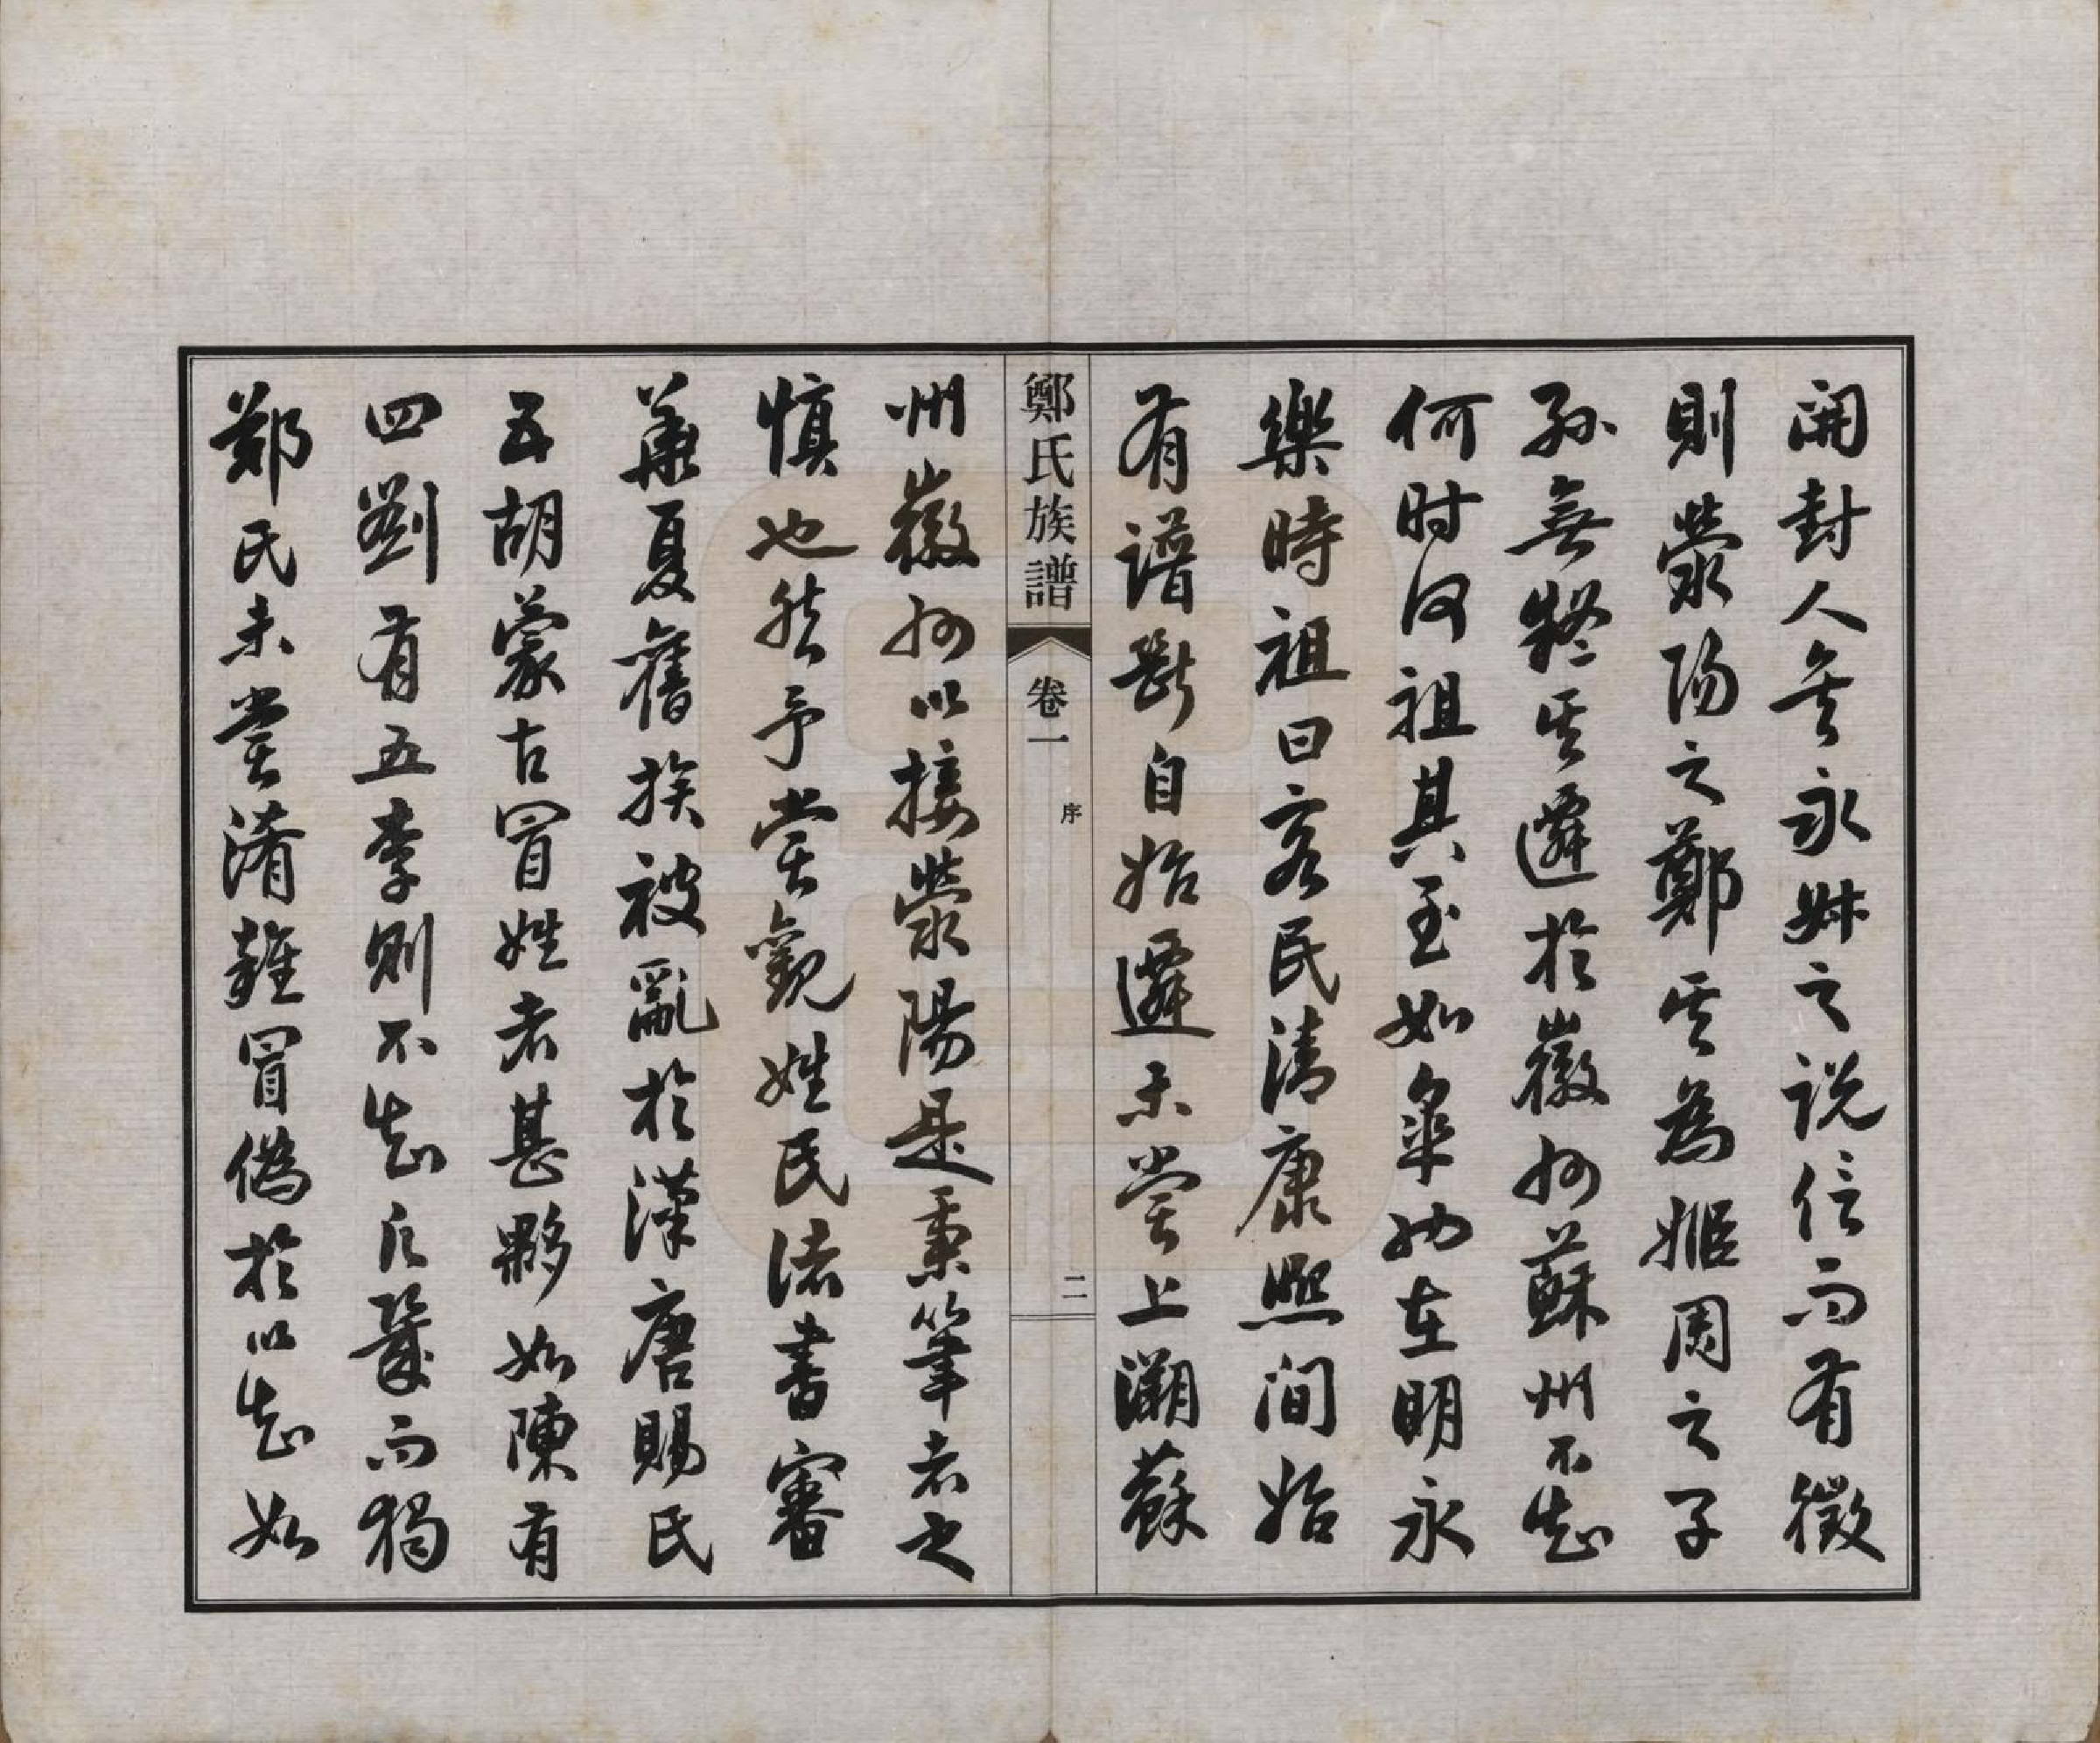 開封人矣永之说信而有徵
則滎陽之鄭其為姬周之子
孫無疑其遷於徽州蘇州不知
何时何祖其至如皋約在明永
樂時祖曰民清康熙間始
有譜斷自始遷未嘗上溯蘇
鄭氏族譜
卷一
序
二
州徽州以接滎陽是秉筆者之
慎也然予嘗觀姓氏諸書審
華夏舊族被亂於漢唐賜氏
五胡蒙古冒姓者甚夥如陳有
四劉有五李則不知凡幾而獨
鄭氏未嘗淆雜冒偽於以知如